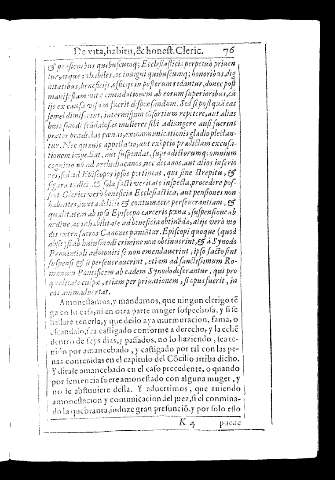 De vita, habitu, & honest. Cleric. 76
& pensionibus quibuscumq; Ecclesiasticis perpetuò priuen
tur, atque inhabiles, ac indigni quibuscumq; honoribus, dig
nitatibus, beneficijs, officijs in posterum reddantur, donec post
manifestam vitæ emendationem ab eorum superioribus, cũ
ijs ex causa visum fuerit dispensandum. Sed si postquã eas
semel dimiserint, intermissum consortium repetere, aut alias
huiusmodi scandalosas mulieres sibi adiungere ausi fuerint
præter prædictas pœnas, excommunicationis gladio plectan-
tur. Nec quævis appellatio, aut exẽptio prædictam execu-
tionem impediat, aut suspendat, supradictorumq; omnium
cognitio non ad archidiaconos, nec decanos, aut alios inferio
res, sed ad Episcopos ipsos pertineat, qui sine strepitu, &
figura iudicij, & sola facti veritate inspecta, procedere pos-
sint. Clerici verò beneficia Ecclesiastica, aut pensiones non
habentes, iuxta delicti & contumaciæ perseuerantiam, &
qualitatem ab ipso Episcopo carceris pœna, suspensione ab
ordine, ac inhabilitate ad beneficia obtinẽda, alijsve mo
dis iuxta sacros Canones puniãtur. Episcopi quoque (quod
absit) si ab huiusmodi crimine non abstinuerint, & à Synodo
Prouinciali admoniti se non emendauerint, ipso facto sint
suspensi, & si perseuerauerint, etiam ad sanctissimum Ro-
manum Pontificem ab eadem Synodo deferantur, qui pro
qualitate culpæ, etiam per priuationem, si opus fuerit, in
eos animaduertat.
Amonestamos, y mandamos, que ningun clerigo tẽ
ga en su casa, ni en otra parte muger sospechosa, y si se
hallare tenerla, y que dello aya murmuracion, fama, o
escandalo, sea castigado conforme a derecho, y la eche
dentro de seys dias, y passados, no lo haziendo, sea te-
nido por amancebado, y castigado por tal con las pe-
nas contenidas en el capitulo del Cõcilio arriba dicho.
Y dizese amancebado en el caso precedente, o quando
por sentencia fuere amonestado con alguna muger, y
no se abstuuiere della. Y aduertimos, que auiendo
amonestacion y comunicacion del juez, si el conmina-
do la quebranta aduze gran presunciõ, y por solo esto
K 4 puede